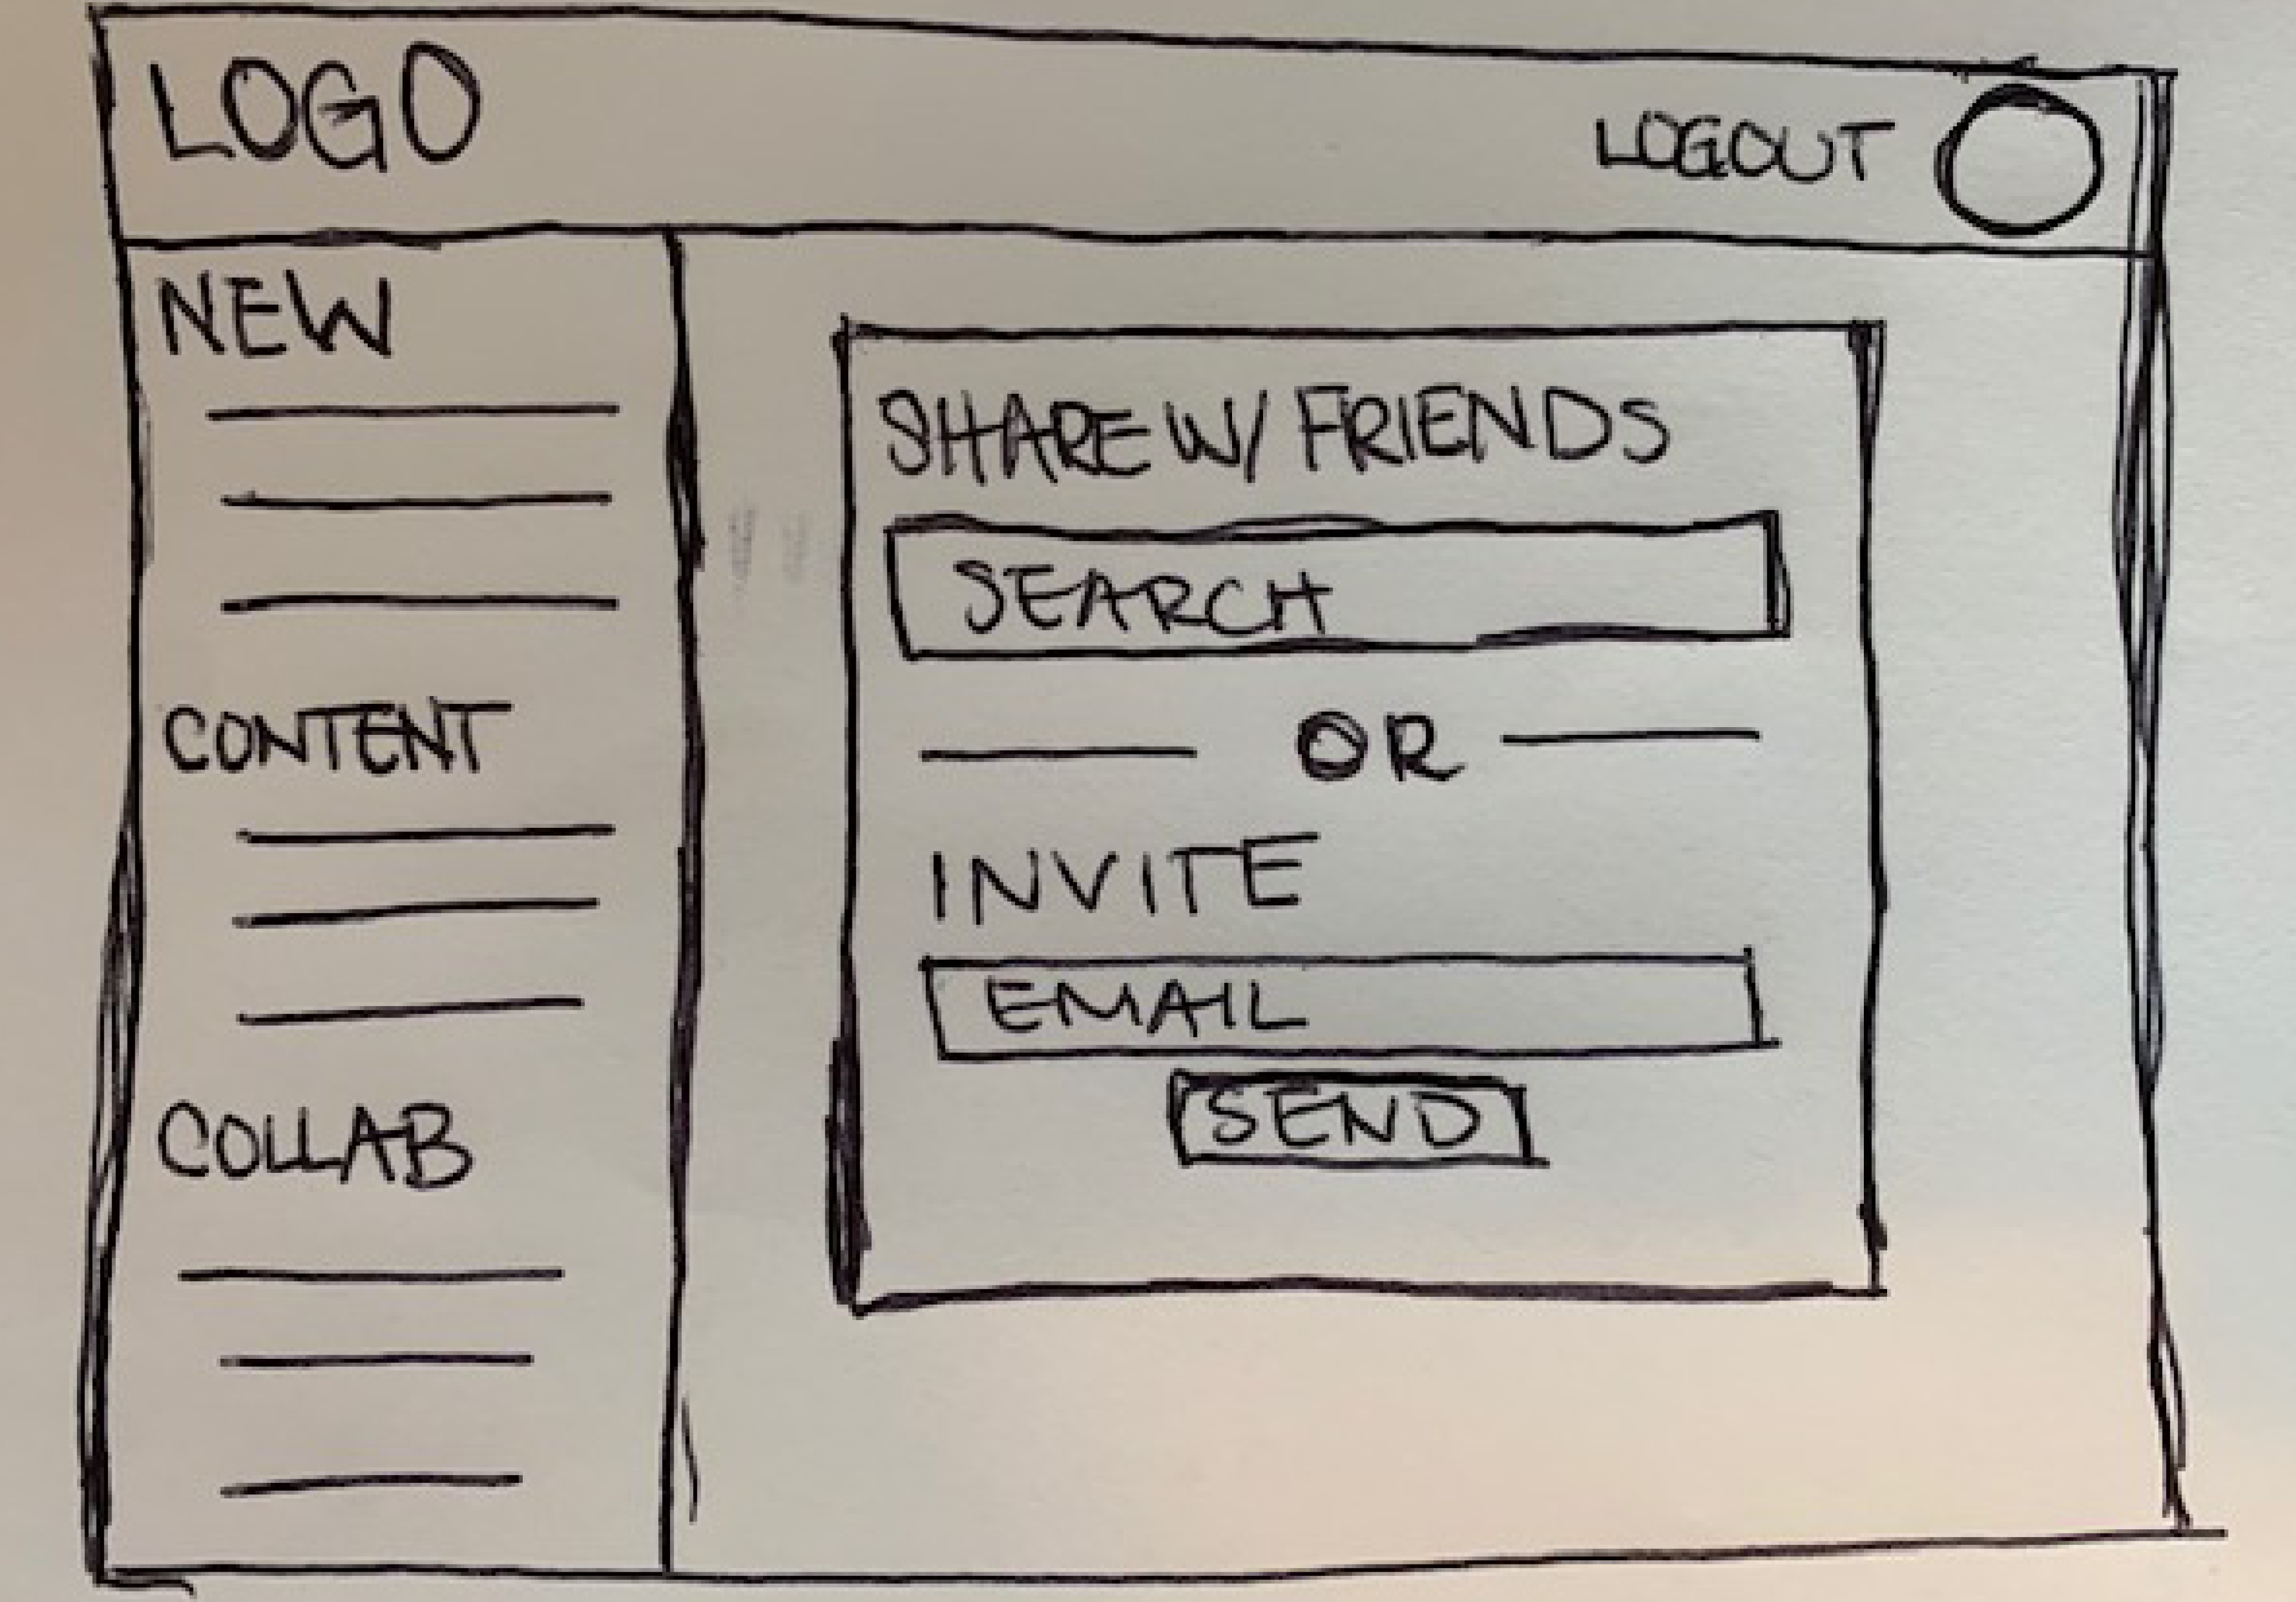 LOGO
LOGOUT
NEW
CONTENT
COLLAB
SHARE W/ FRIENDS
SEARCH
OR
INVITE
EMAIL
SEND